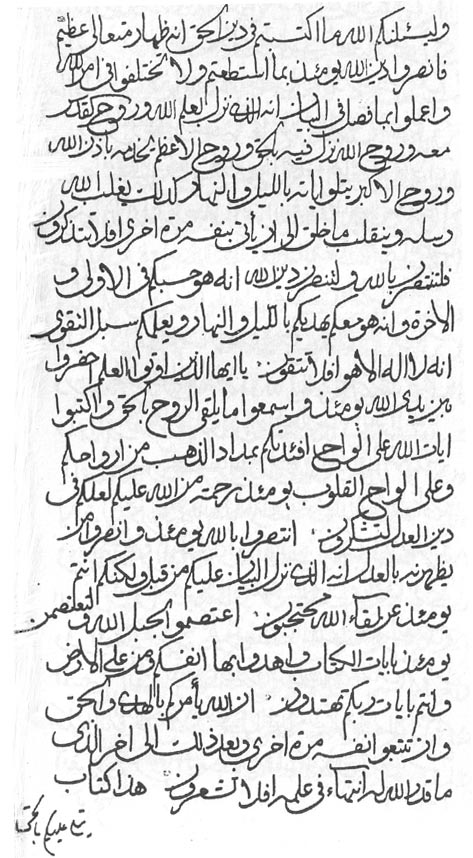 وليسئلنكم الله ما اكتسبتم في دين الحق انه ظهار متعالي عظيم
فانصروا دين الله يومئذ بما استطعتم ولا تختلفوا في امر الله
واعملوا بما فصل في البيان انه الذي نزل بعلم الله وروح القدس
معه وروح الله نزل فيه بالحق وروح الاعظم باذن الله
وروح الاكبر يتلو اياته بالليل والنهار كذلك يغلب الله
رسله وينقلب ما خلق الى ان ياتي بنفسه مرة اخرى افلا تتذكرون
فلتنصرن بالله ولتنصرن دين الله انه هو حسبكم في الاولى و
الاخرة وانه هو معكم يهديكم بالليل والنهار ويعلمكم سبل التقوى
انه لا اله الا هو افلا تتقون يا ايها الذين اوتوا العلم احضروا
بين يدي الله يومئذ واسمعوا ما يلقي الروح بالحق واكتبوا
ايات الله على الواح افئدتكم بمداد الذهب من ارواحكم
وعلى الواح القلوب يومئذ رحمة من الله عليكم لعلكم في
دين العدل انتصروا بالله يومئذ وانصروا من
يظهرنه بالعدل انه الذي نزل البيان عليكم من قبل ولكنكم انتم
يومئذ عن لقاء الله محتجبون اعتصموا بحبل الله و لتعتصمن
يومئذ بايات الكتاب واهدوا بها انفسكم ومن على الارض
وانتم بايات ربكم تهتدون ان الله يأمركم بالهدى والحق
وان تتبعوا نفسه مرة اخرى وبعد ذلك الى اخر الذي
ما قدر الله له انتهاء في علمه افلا تشعرون هذا كتاب
عليكم بالحق